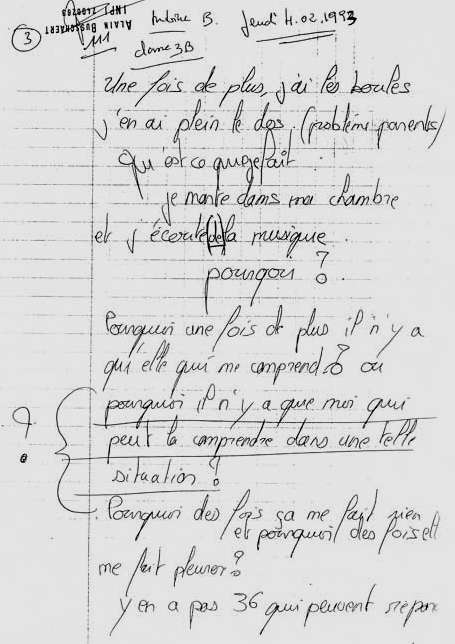 ③ ALAIN BUSSCHAERT
INPI
Antoine B. Jeudi 4.02.1993
classe 3B
Une fois de plus, j'ai les boules
j'en ai plein le dos, (problème parents)
Qu'est ce que je fait
je monte dans ma chambre
et j'écoute (de) la musique.
pourquoi ?
Pourquoi une fois de plus il n'y a
qu'elle qui me comprend ? ou
pourquoi il n'y a que moi qui
peut la comprendre dans une telle
situation ?
?
Pourquoi des fois ça me fait rien
et pourquoi des fois ell
me fait pleurer ?
y en a pas 36 qui peuvent